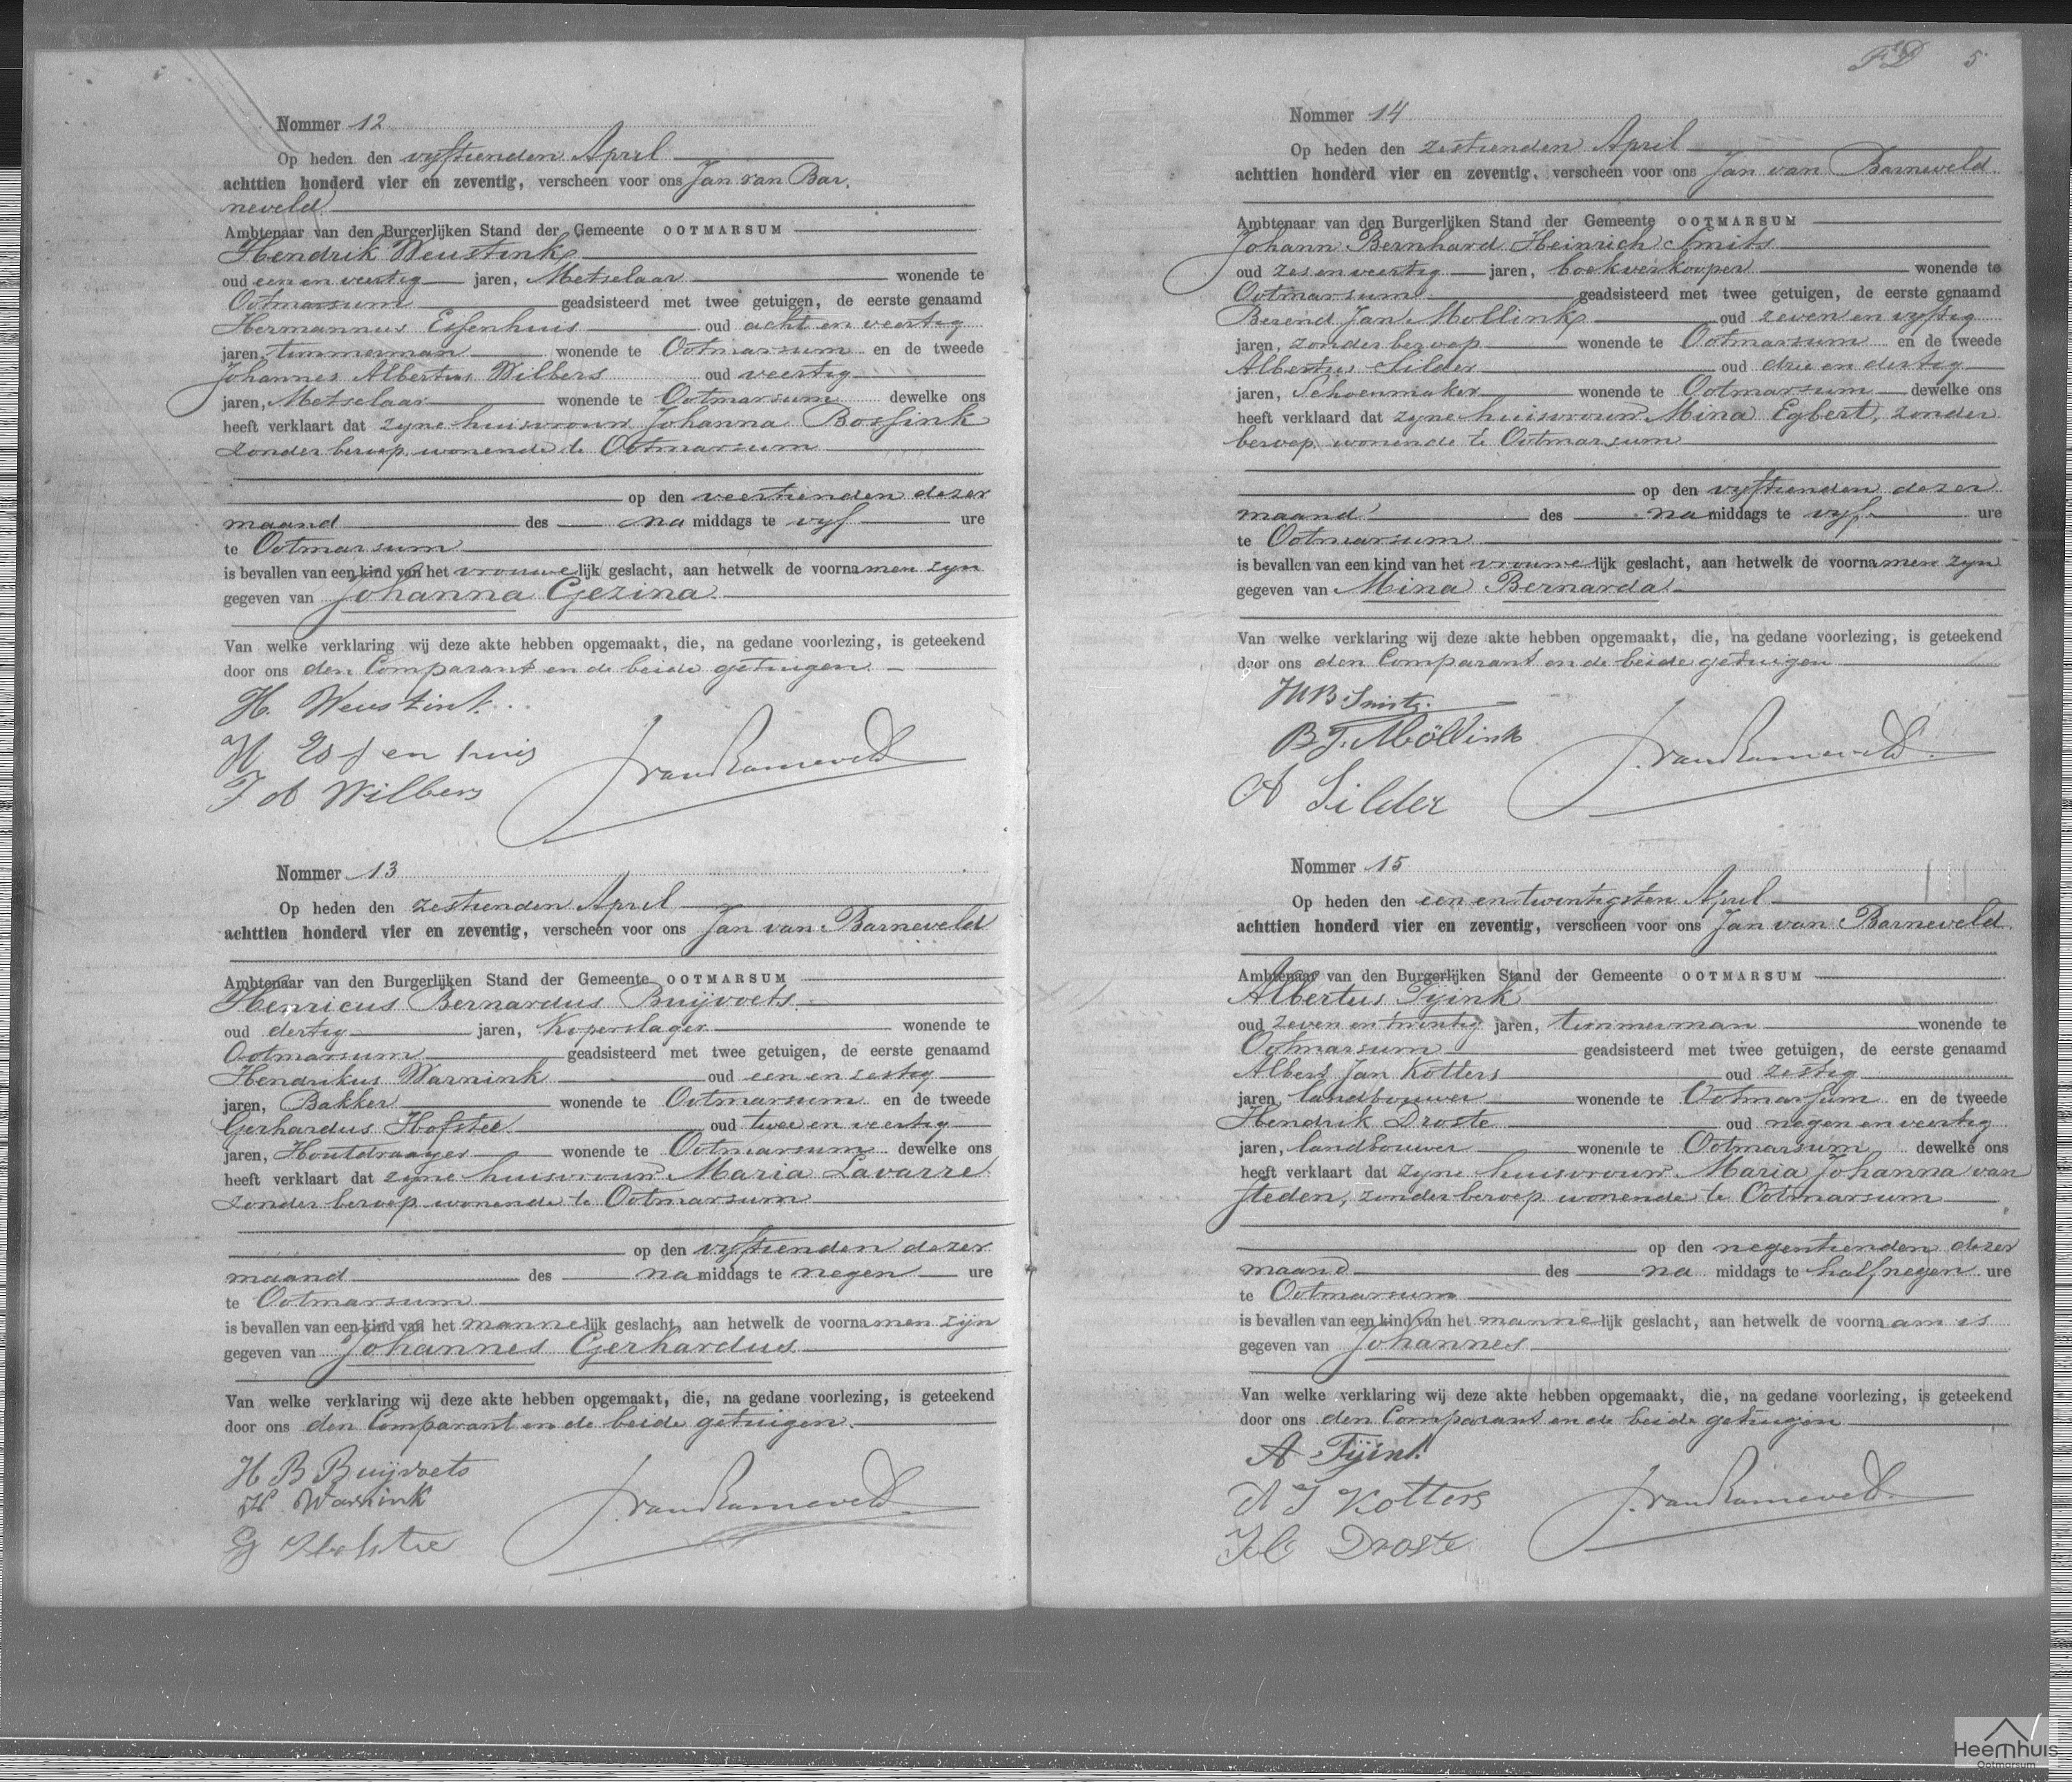 Nommer 12
Op heden den vyftienden April
achttien honderd vier en zeventig, verscheen voor ons Jan van Bar,
neveld
Ambtenaar van den Burgerlijken Stand der Gemeente OOTMARSUM
Hendrik Weustink
oud een en veertig jaren, Metselaar wonende te
Ootmarsum geadsisteerd met twee getuigen, de eerste genaamd
Hermannus Essenhuis oud acht en veertig
jaren, timmerman wonende te Ootmarsum en de tweede
Johannes Albertus Wilbers oud veertig
jaren, Metselaar wonende te Ootmarsum dewelke ons
heeft verklaart dat zyne huisvrouw Johanna Bossink
zonder beroep wonende te Ootmarsum
op den veertienden dezer
maand des na middags te vyf ure
te Ootmarsum
is bevallen van een kind van het vrouwelijk geslacht, aan hetwelk de voornamen zyn
gegeven van Johanna Gezina
Van welke verklaring wij deze akte hebben opgemaakt, die, na gedane voorlezing, is geteekend
door ons den Comparant en de beide getuigen
H. Weustink
H Essenhuis
J A Wilbers
J. van Barneveld
Nommer 13
Op heden den zestienden April
achttien honderd vier en zeventig, verscheen voor ons Jan van Barneveld
Ambtenaar van den Burgerlijken Stand der Gemeente OOTMARSUM
Henricus Bernardus Buijvoets
oud dertig jaren, Koperslager wonende te
Ootmarsum geadsisteerd met twee getuigen, de eerste genaamd
Hendrikus Warnink oud een en zestig
jaren, Bakker wonende te Ootmarsum en de tweede
Gerhardus Hofstee oud twee en veertig
jaren, Houtdraayer wonende te Ootmarsum dewelke ons
heeft verklaart dat zyne huisvrouw Maria Lavarre
zonder beroep wonende te Ootmarsum
op den vyftienden dezer
maand des na middags te negen ure
te Ootmarsum
is bevallen van een kind van het mannelijk geslacht, aan hetwelk de voornamen zijn
gegeven van Johannes Gerhardus
Van welke verklaring wij deze akte hebben opgemaakt, die, na gedane voorlezing, is geteekend
door ons den Comparant en de beide getuigen.
H B Buijvoets
H Warnink
G Hofstee
J. van Barneveld
5
Nommer 14
Op heden den zestienden April
achttien honderd vier en zeventig, verscheen voor ons Jan van Barneveld
Ambtenaar van den Burgerlijken Stand der Gemeente OOTMARSUM
Johann Bernhard Heinrich Smits
oud zes en veertig jaren, boekverkooper wonende te
Ootmarsum geadsisteerd met twee getuigen, de eerste genaamd
Berend Jan Mollink oud zeven en vyftig
jaren, zonder beroep wonende te Ootmarsum en de tweede
Albertus Silder oud drie en dertig
jaren, Schoenmaker wonende te Ootmarsum dewelke ons
heeft verklaard dat zyne huisvrouw Mina Egbert, zonder
beroep wonende te Ootmarsum
op den vyftienden dezer
maand des na middags te vyf ure
te Ootmarsum
is bevallen van een kind van het vrouwelijk geslacht, aan hetwelk de voornamen zyn
gegeven van Mina Bernarda
Van welke verklaring wij deze akte hebben opgemaakt, die, na gedane voorlezing, is geteekend
door ons den Comparant en de beide getuigen
Smits
B J. Möllink
A Silder
J. van Barneveld
Nommer 15
Op heden den een en twintigsten April
achttien honderd vier en zeventig, verscheen voor ons Jan van Barneveld
Ambtenaar van den Burgerlijken Stand der Gemeente OOTMARSUM
Albertus Tyink
oud zeven en twintig jaren, timmerman wonende te
Ootmarsum geadsisteerd met twee getuigen, de eerste genaamd
Albert Jan Kotters oud zestig
jaren, landbouwer wonende te Ootmarsum en de tweede
Hendrik Droste oud negen en veertig
jaren, landbouwer wonende te Ootmarsum dewelke ons
heeft verklaart dat zyne huisvrouw Maria Johanna van
steden, zonder beroep wonende te Ootmarsum
op den negentienden dezer
maand des na middags te half negen ure
te Ootmarsum
is bevallen van een kind van het mannelijk geslacht, aan hetwelk de voornaam is
gegeven van Johannes
Van welke verklaring wij deze akte hebben opgemaakt, die, na gedane voorlezing, is geteekend
door ons den Comparant en de beide getuigen
A Tyink
A J Kotters
H Droste
J. van Barneveld
Heemhuis
Ootmarsum